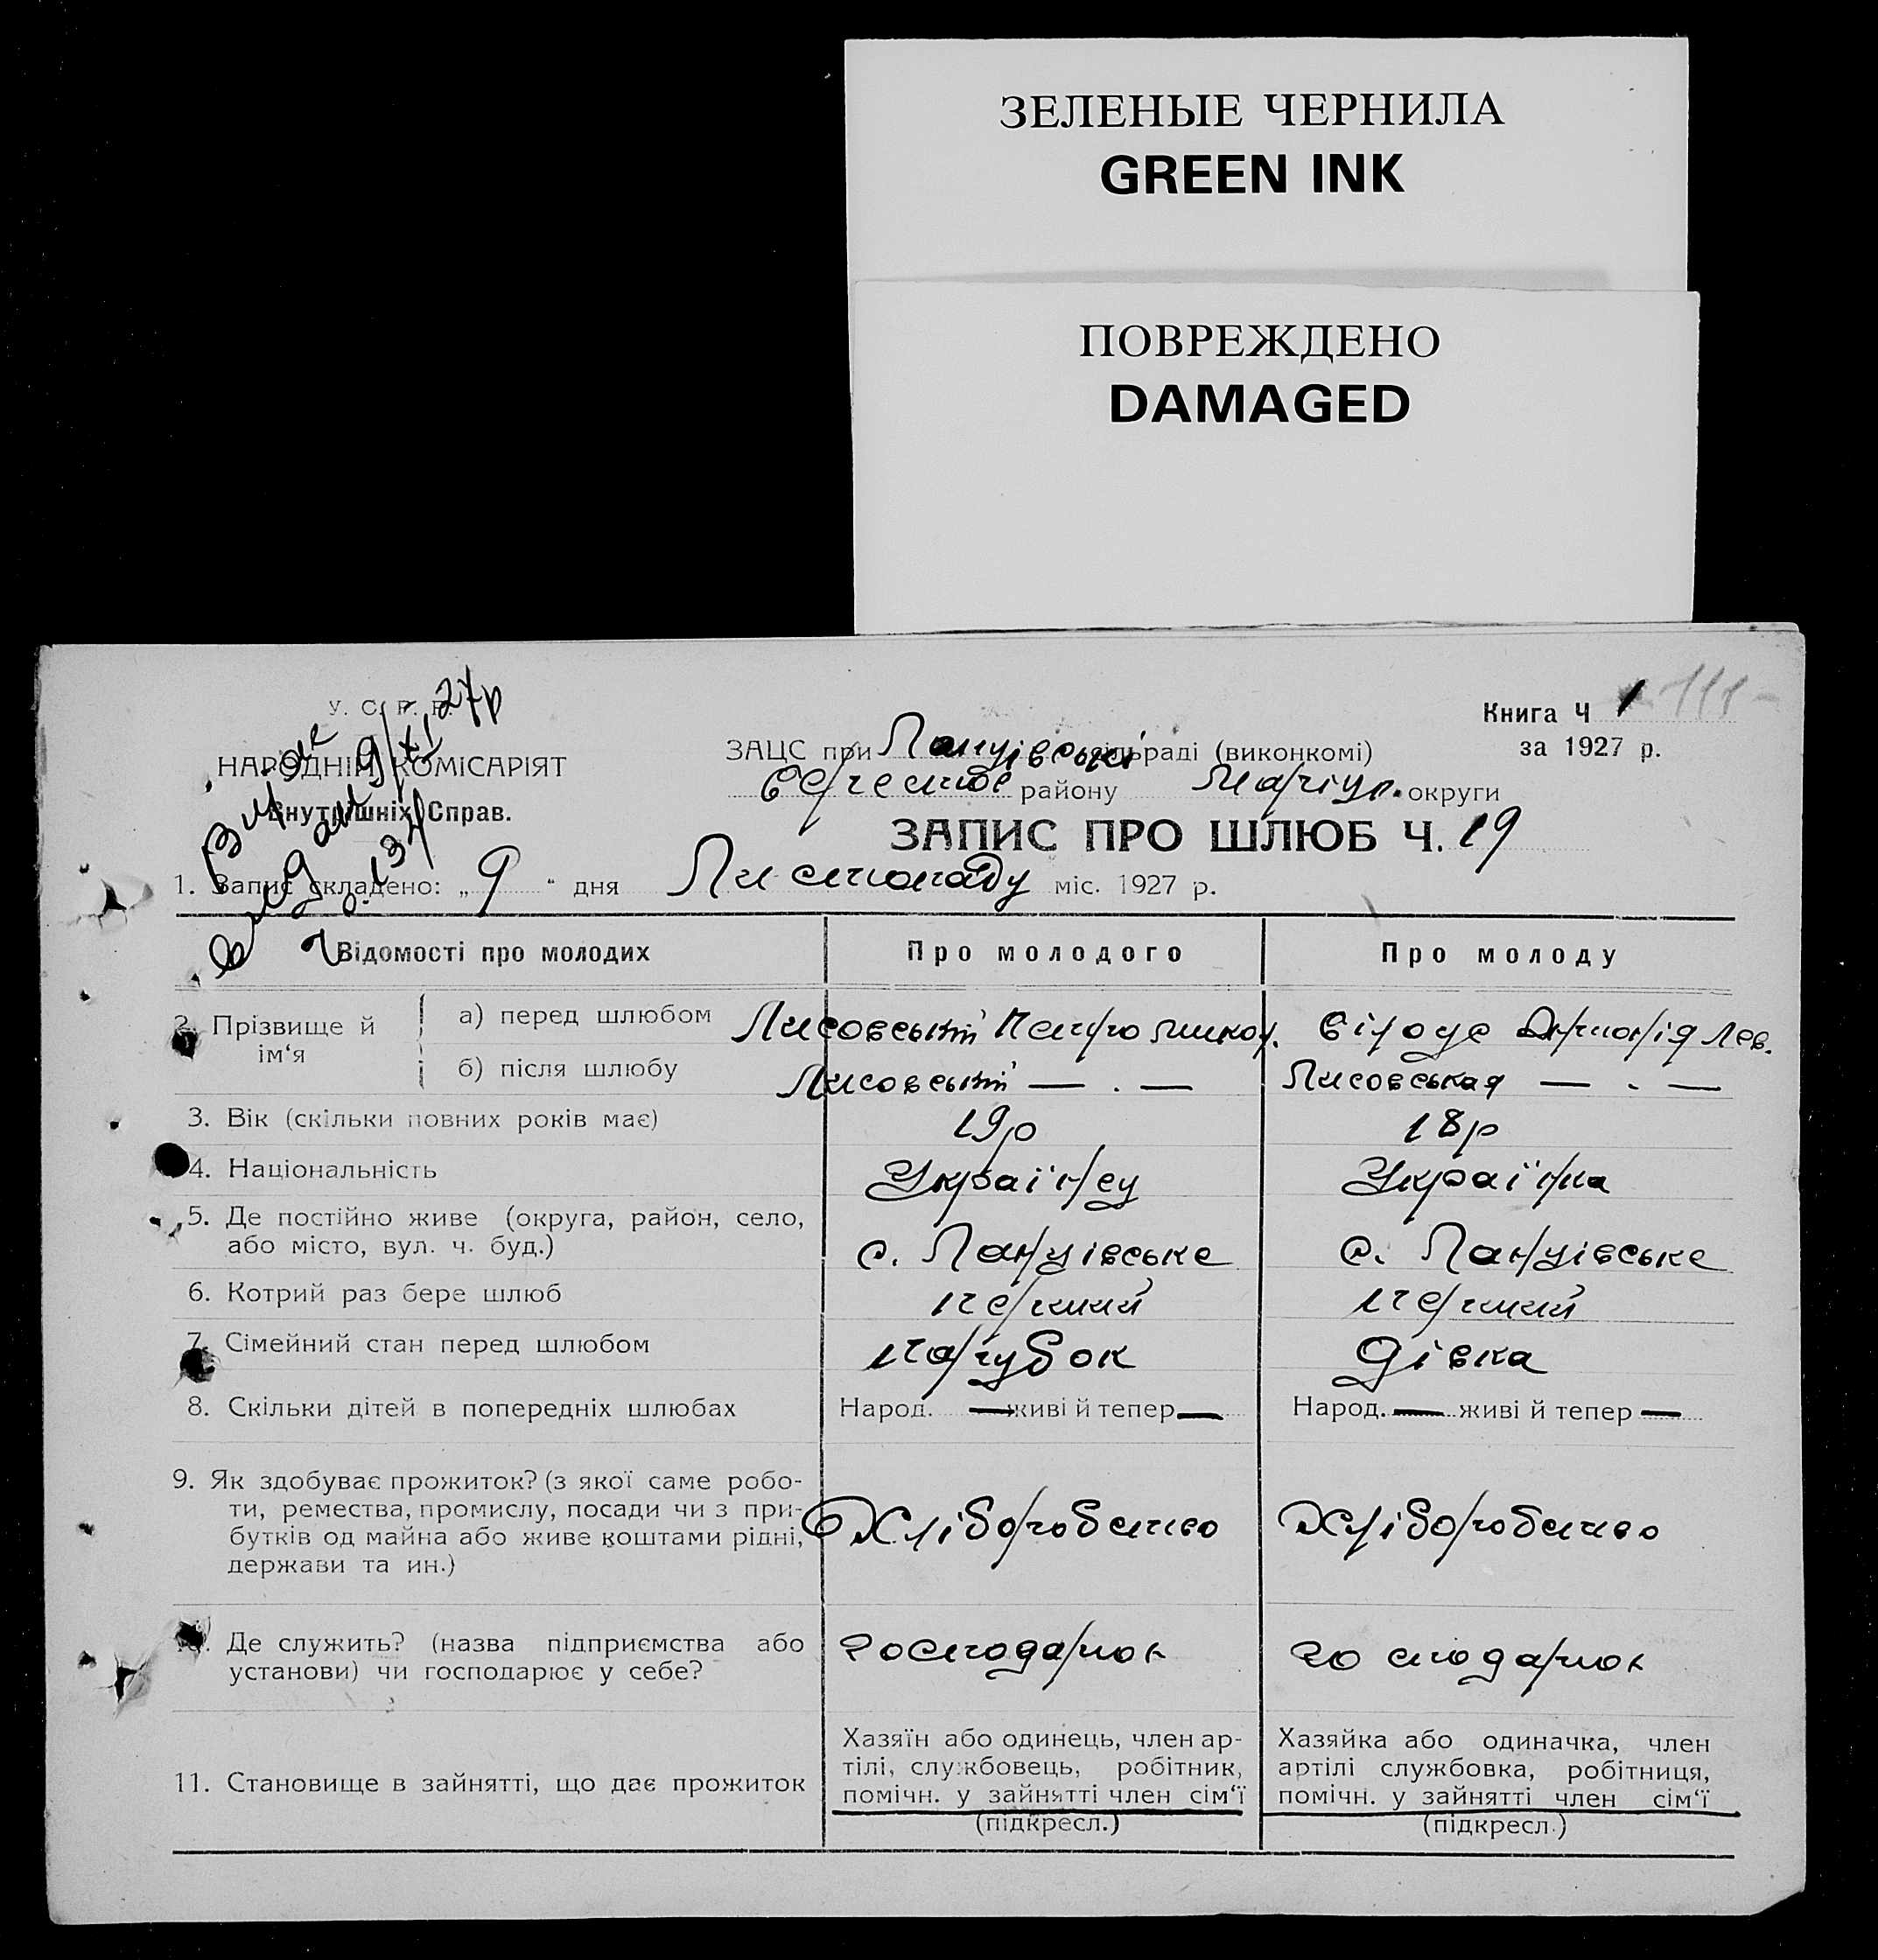 ЗЕЛЕНЫЕ ЧЕРНИЛА
GREEN INK
ПОВРЕЖДЕНО
DAMAGED
У. С. Р. Р.
НАРОДНІЙ КОМІСАРІЯТ
Внутрішніх Справ.
Витяг
видан 9/XI 27р
Ч 0-134
Книга Ч 1 - 111 -
за 1927 р.
ЗАЦС при сільраді (виконкомі)
району Маріуп. округи
ЗАПИС ПРО ШЛЮБ Ч. 19
1. Запис складено: „ 9 “ дня Листопаду міс. 1927 р.
Відомості про молодих Про молодого Про молоду
2. Прізвище й ім‘я
а) перед шлюбом Лисовський Петро Лев.
б) після шлюбу Лисовський — . — Лисовськая — . —
3. Вік (скільки повних років має) 19р 18р
4. Національність Українец Українка
5. Де постійно живе (округа, район, село,
або місто, вул. ч. буд.) с. Ланцівське с. Ланцівське
6. Котрий раз бере шлюб перший перший
7. Сімейний стан перед шлюбом парубок дівка
8. Скільки дітей в попередніх шлюбах Народ. — живі й тепер — Народ. — живі й тепер —
9. Як здобуває прожиток? (з якої саме робо-
ти, ремества, промислу, посади чи з при-
бутків од майна або живе коштами рідні,
держави та ин.) Хліборобство Хліборобство
10. Де служить? (назва підприємства або
установи) чи господарює у себе? господарює господарює
11. Становище в зайнятті, що дає прожиток
Хазяїн або одинець, член ар-
тілі, службовець, робітник,
помічн. у зайнятті член сім‘ї
(підкресл.)
Хазяйка або одиначка, член
артілі службовка, робітниця,
помічн. у зайнятті член сім‘ї
(підкресл.)